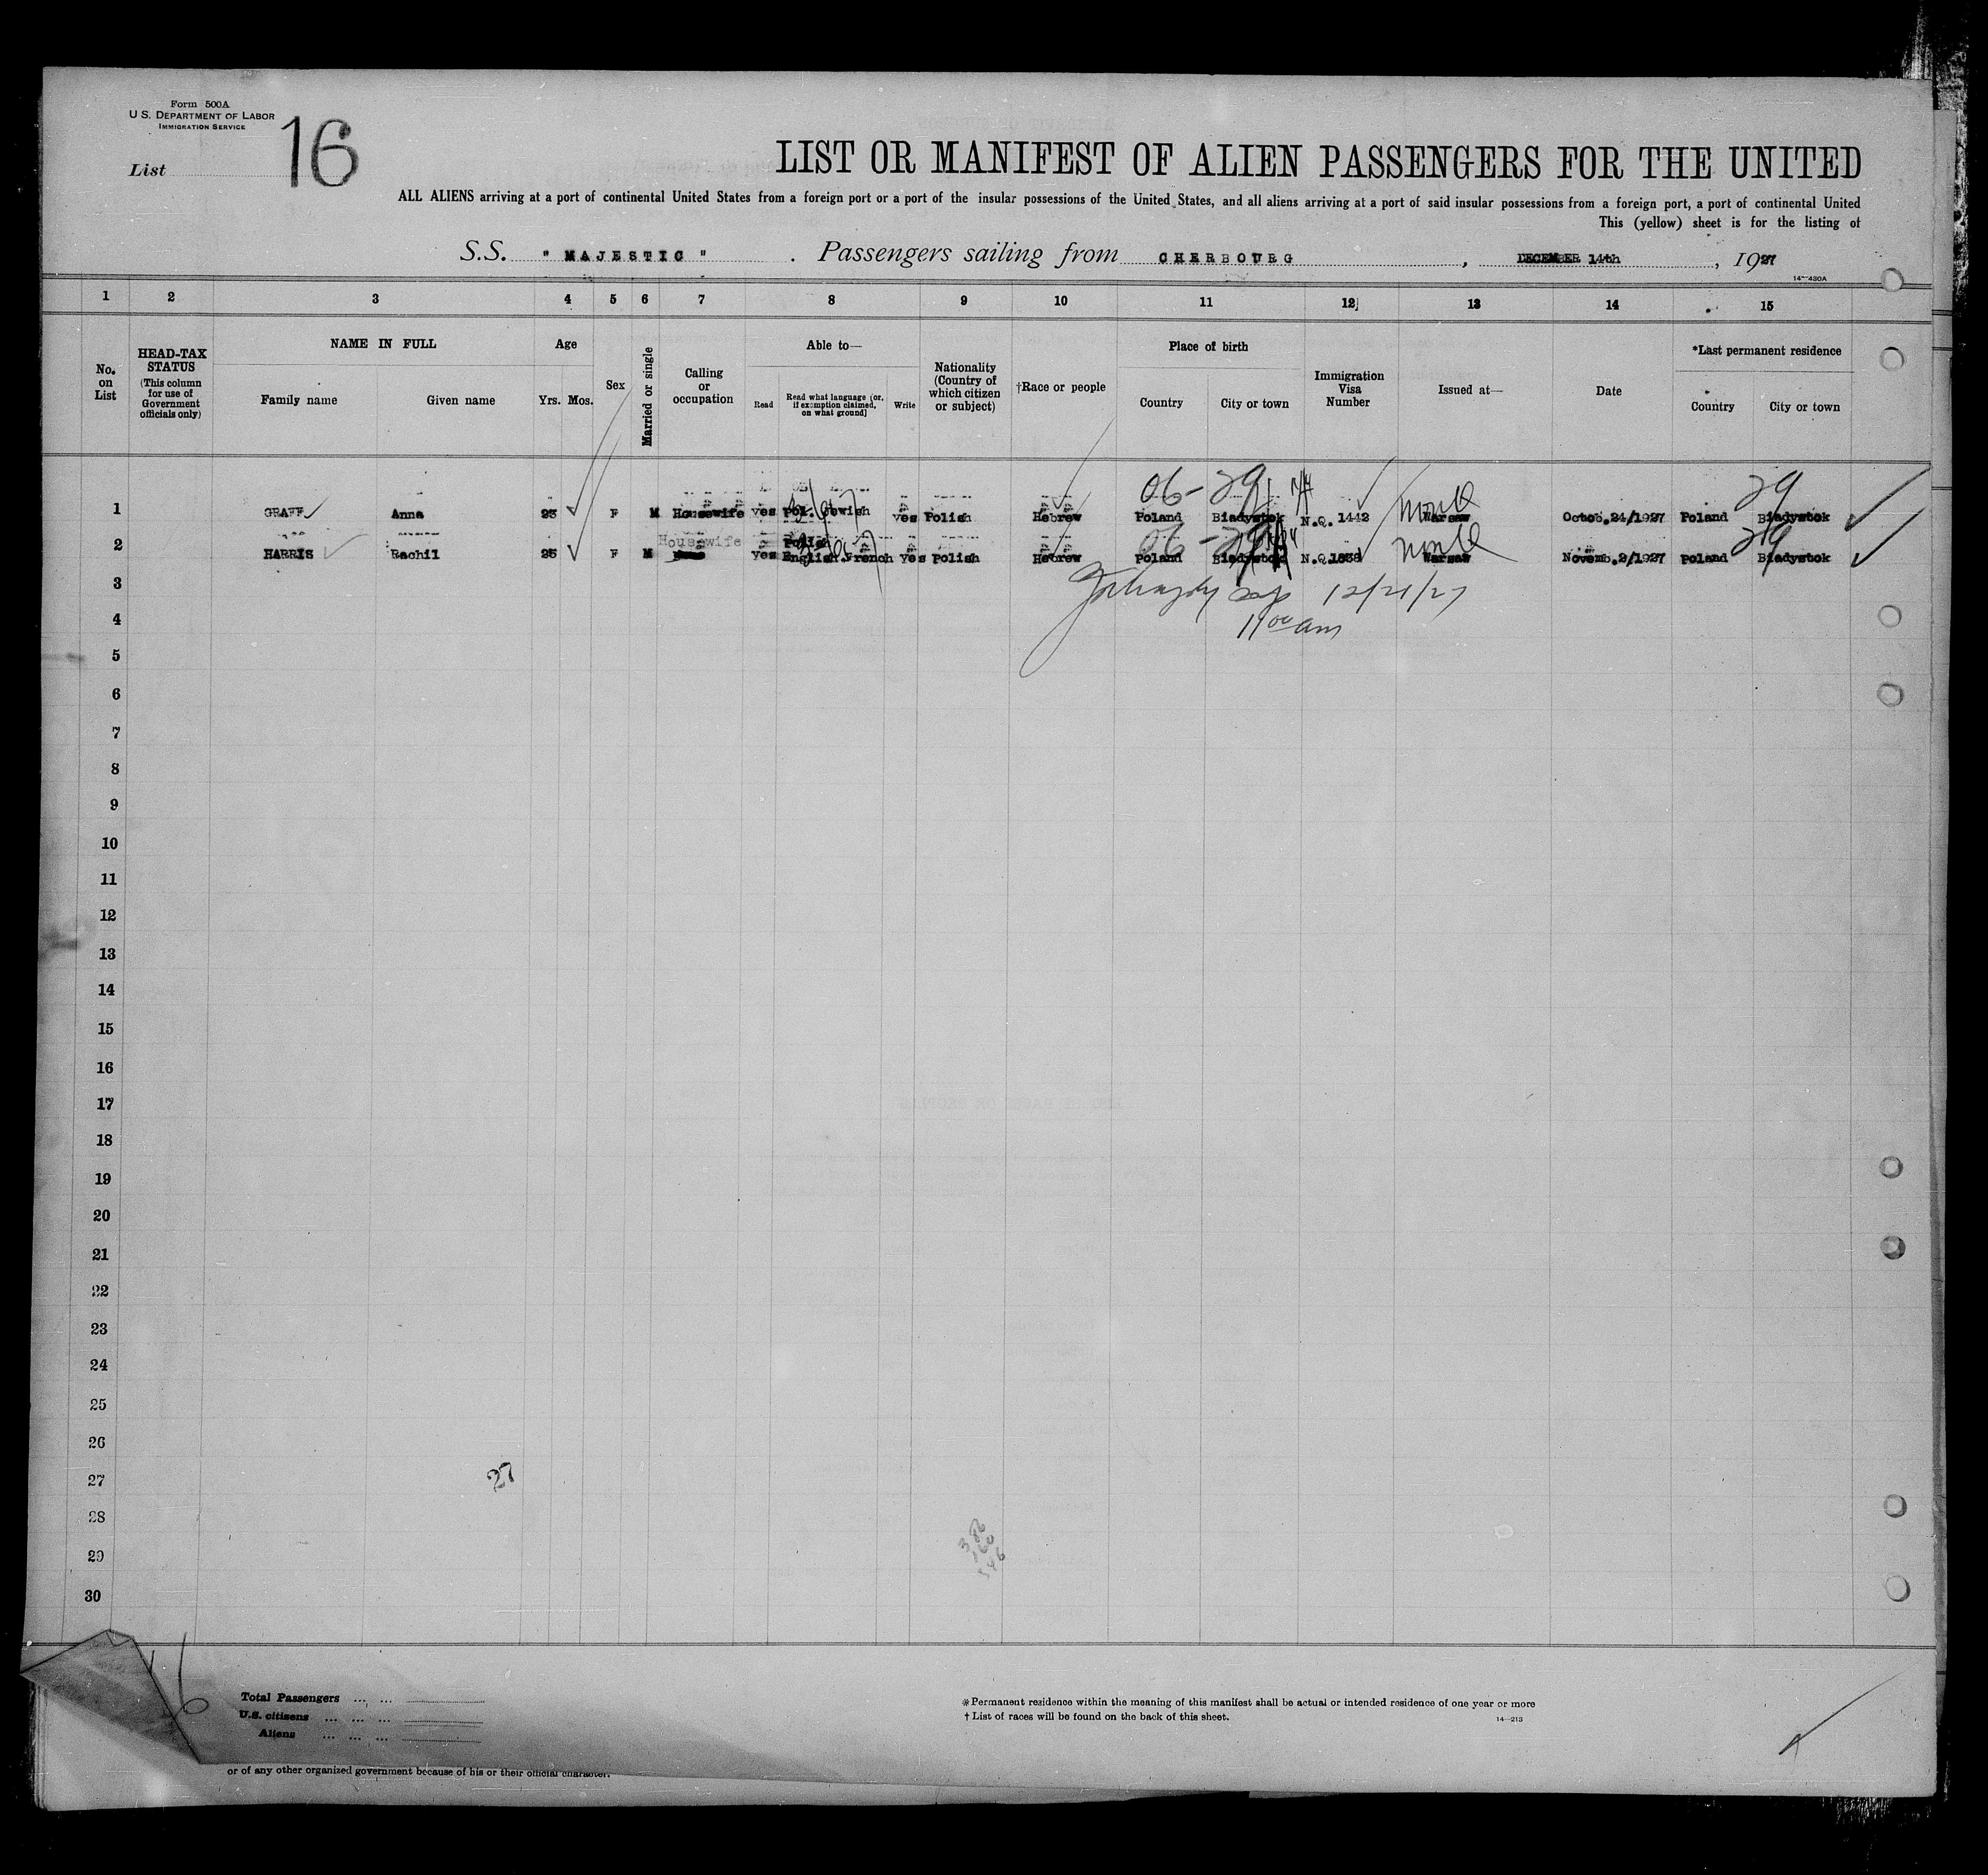 Form 500A
U. S. DEPARTMENT OF LABOR
IMMIGRATION SERVICE
List 16
LIST OR MANIFEST OF ALIEN PASSENGERS FOR THE UNITED
ALL ALIENS arriving at a port of continental United States from a foreign port or a port of the insular possessions of the United States, and all aliens arriving at a port of said insular possessions from a foreign port, a port of continental United
This (yellow) sheet is for the listing of
S.S. " MAJESTIC " . Passengers sailing from CHERBOURG , DECEMBER 14th , 1927
14—430A
1 2 3 4 5 6 7 8 9 10 11 12 13 14 15
No. on List
HEAD-TAX STATUS
(This column for use of Government officials only)
NAME IN FULL
Family name Given name
Age
Yrs. Mos.
Sex
Married or single
Calling or occupation
Able to—
Read Read what language (or, if exemption claimed, on what ground) Write
Nationality (Country of which citizen or subject)
†Race or people
Place of birth
Country City or town
Immigration Visa Number
Issued at—
Date
*Last permanent residence
Country City or town
06-29 29
1 GRAFF Anna 23 F M Housewife yes Pol. Jewish yes Polish Hebrew Poland Biadystok N.Q. 1442 Warsaw Octob.24/1927 Poland Biadystok
06-29 29
Housewife
2 HARRIS Rachil 25 F M Yes English.French Yes Polish Hebrew Poland Biadystok N.Q.1838 Warsaw Novemb.2/1927 Poland Biadystok
3 12/21/27
4 11 00 am
5
6
7
8
9
10
11
12
13
14
15
16
17
18
19
20
21
22
23
24
25
26
27 27
28
29
30
16
Total Passengers ... ...
U.S. citizens ... ... ...
Aliens ... ... ...
* Permanent residence within the meaning of this manifest shall be actual or intended residence of one year or more
† List of races will be found on the back of this sheet.
14—213
or of any other organized government because of his or their official character.